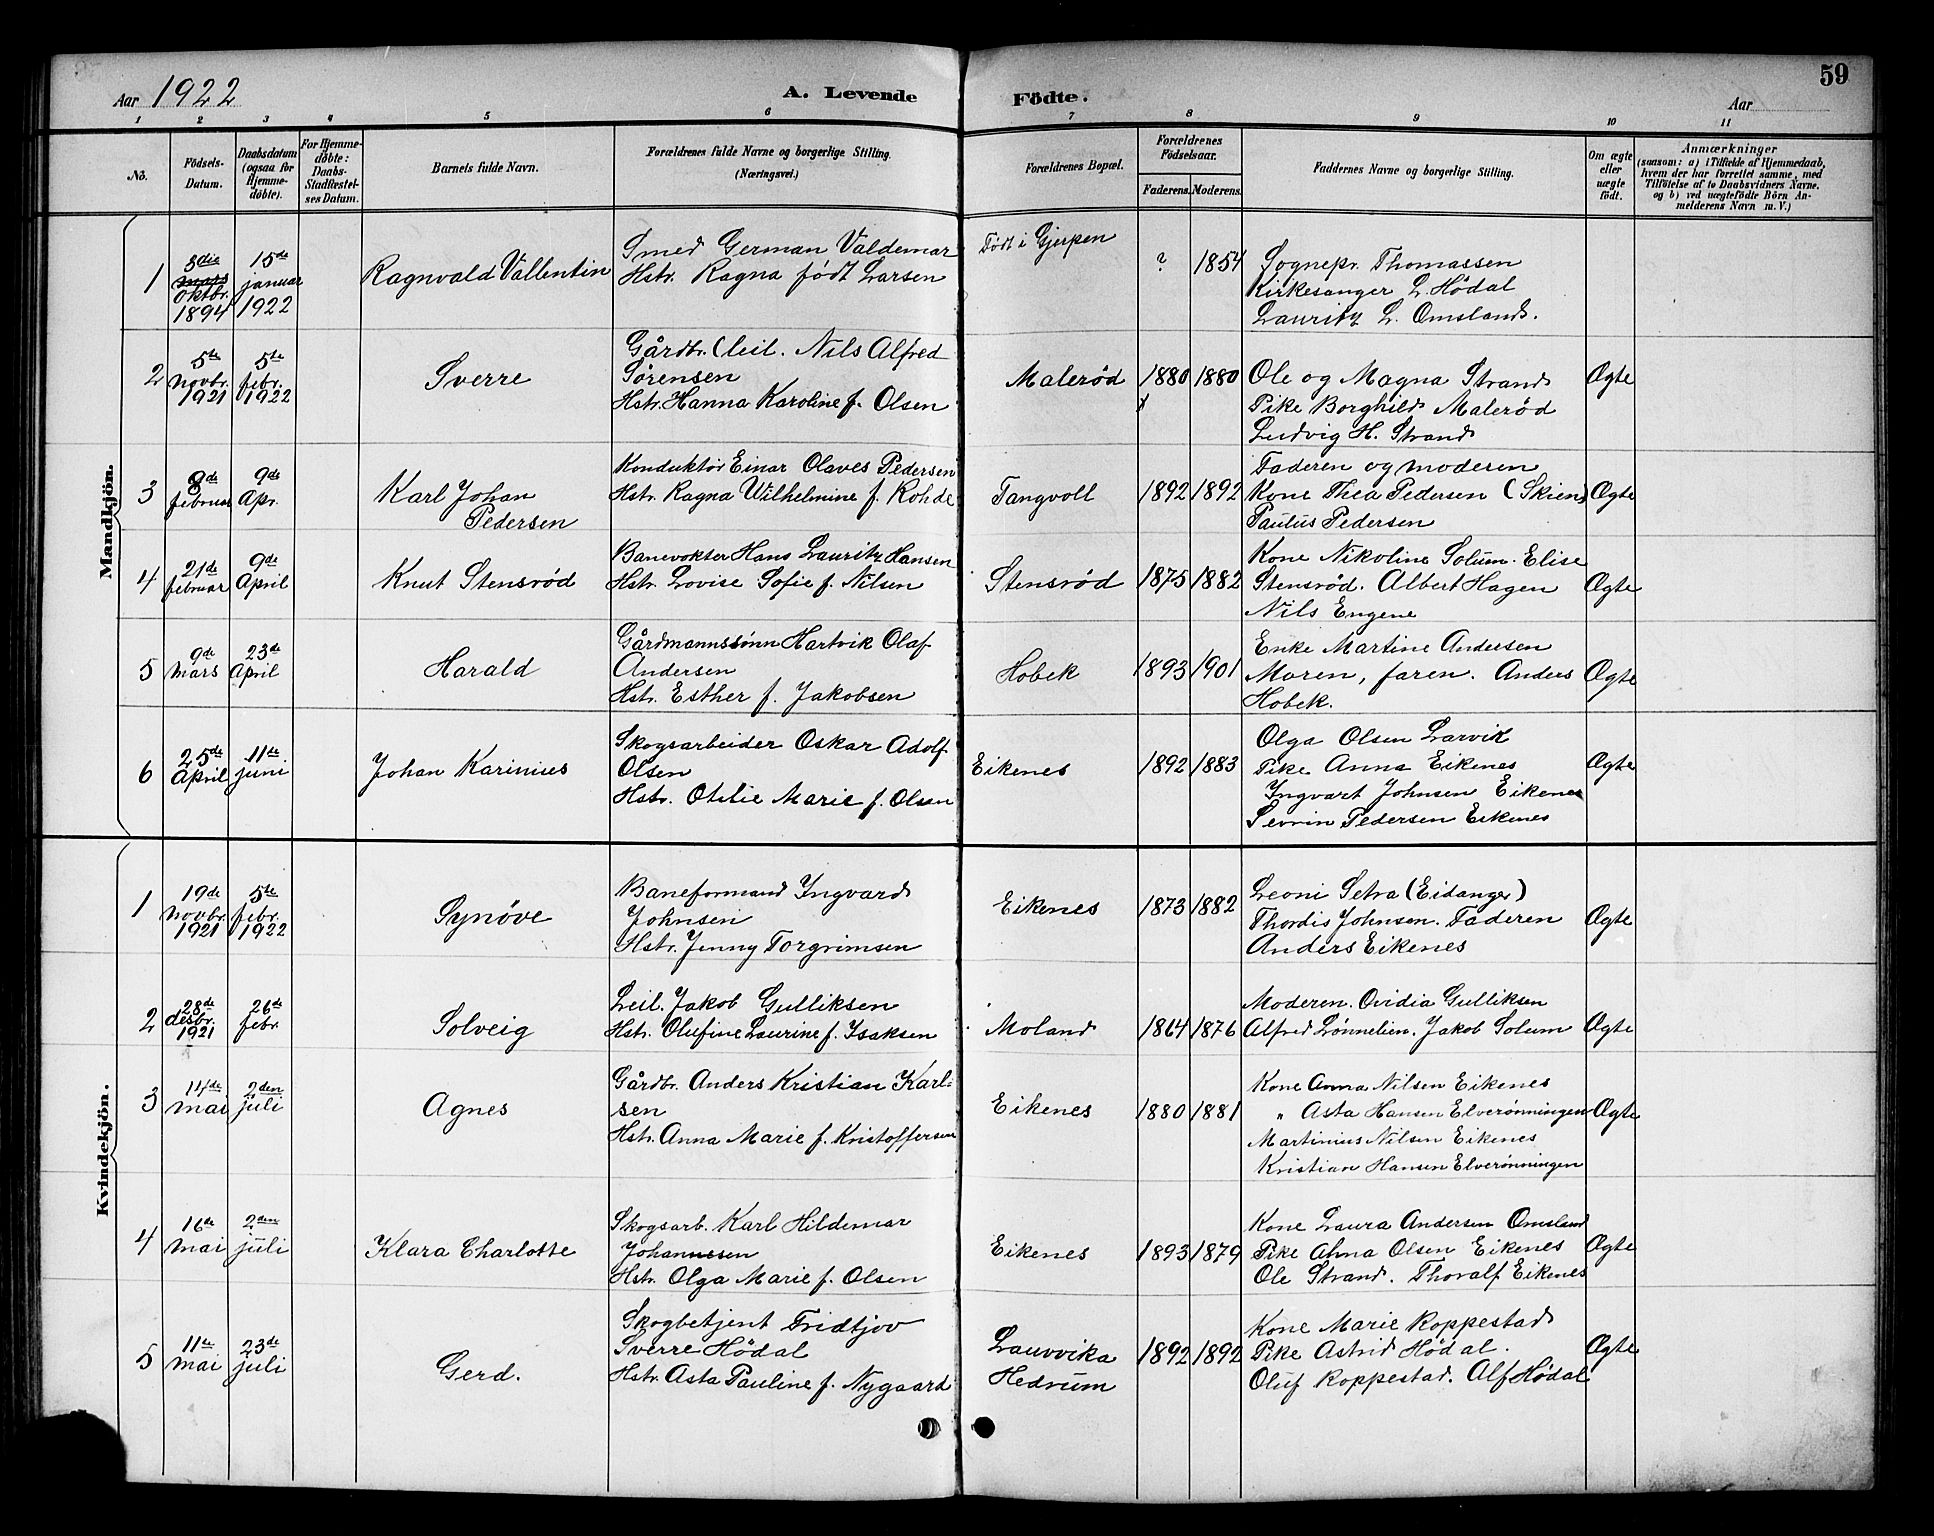 Aar 1922
A. Levende
Födte.
Aar
59
1 2 3 4 5 6 7 8 9 10 11
No.
Födsels-Datum.
Daabsdatum (ogsaa for Hjemme-döbte).
For Hjemme-döbte: Daabs-Stadfæstel-ses Datum.
Barnets fulde Navn.
Forældrenes fulde Navne og borgerlige Stilling. (Næringsvei.)
Forældrenes Bopæl.
Forældrenes Födselsaar.
Faderens. Moderens.
Faddernes Navne og borgerlige Stilling.
Om ægte eller uægte födt.
Anmærkninger
(saasom: a) i Tilfælde af Hjemmedaab, hvem der har forrettet samme, med Tilföielse af to Daabsvidners Navne. og b) ved uægtefödte Börn An-melderens Navn m. V.)
Mandkjön.
1
3die mars oktbr. 1894
15de januar 1922
Ragnvald Vallentin
Smed German Valdemar
Hstr. Ragna født Larsen
Født i Gjerpen
? 1854
Sognepr. Thomassen
Kirkesanger L. Hödal
Lauritz L. Omsland.
2
5te novbr. 1921
5te febr. 1922
Sverre
Gårdbr. (leil. Nils Alfred
Sörensen
Hstr. Hanna Karoline f. Olsen
Malerød
1880 1880
Ole og Magna Strand
Pike Borghild Malerød
Ludvig H. Strand
Ægte
3
8de februar
9de Apr.
Karl Johan
Pedersen
Konduktör Einar Olaves Pedersen
Hstr. Ragna Wilhelmine f. Rohde
Tangvoll
1892 1892
Faderen og moderen
Kone Thea Pedersen (Skien)
Paulus Pedersen
Ægte
4
21de februar
9de April
Knut Stensrød
Banevokter Hans Lauritz Hansen
Hstr. Lovise Sofie f. Nilsen
Stensrød
1875 1882
Kone Nikoline Solum. Elise
Stensrød. Albert Hagen
Nils Engene
Ægte
5
9de mars
23de April
Harald
Gårdmannssönn Hartvik Olaf
Andersen
Hstr. Esther f. Jakobsen
Hobek
1893 1901
Enke Martine Andersen
Moren, faren. Anders
Hobek.
Ægte
6
25de April
11te juni
Johan Karinius
Skogsarbeider Oskar Adolf
Olsen
Hstr. Otilie Marie f. Olsen
Eikenes
1892 1883
Olga Olsen Larvik
Pike Anna Eikenes
Ingvart Johnsen Eikenes
Sevrin Pedersen Eikenes
Ægte
Kvindekjön.
1
19de novbr. 1921
5te febr. 1922
Synöve
Baneformand Ingvard
Johnsen
Hstr. Jenny Torgrimsen
Eikenes
1873 1882
Leoni Setra (Eidanger)
Thordis Johnsen. Faderen
Anders Eikenes
Ægte
2
28de desbr. 1921
26de febr.
Solveig
Leil. Jakob Gulliksen
Hstr. Olufine Laurine f. Isaksen
Moland
1864 1876
Moderen. Ovidia Gulliksen
Alfred Lønnelien. Jakob Solum
Ægte
3
14de mai
2den juli
Agnes
Gårdbr. Anders Kristian Karl=
sen
Hstr. Anna Marie f. Kristoffersen
Eikenes
1880 1881
Kone Anna Nilsen Eikenes
" Asta Hansen Elverønningen
Martinius Nilsen Eikenes
Kristian Hansen Elverønningen
Ægte
4
16de mai
2den juli
Klara Charlotte
Skogsarb. Karl Hildemar
Johannesen
Hstr. Olga Marie f. Olsen
Eikenes
1893 1879
Kone Laura Andersen Omsland
Pike Anna Olsen Eikenes
Ole Strand. Thoralf Eikenes
Ægte
5
11te mai
23de juli
Gerd.
Skogbetjent Fridtjov
Sverre Hödal
Hstr. Asta Pauline f. Nygaard
Lauvvika
Hedrum
1892 1892
Kone Marie Roppestad
Pike Astrid Hödal.
Oluf Roppestad. Alf Hödal
Ægte